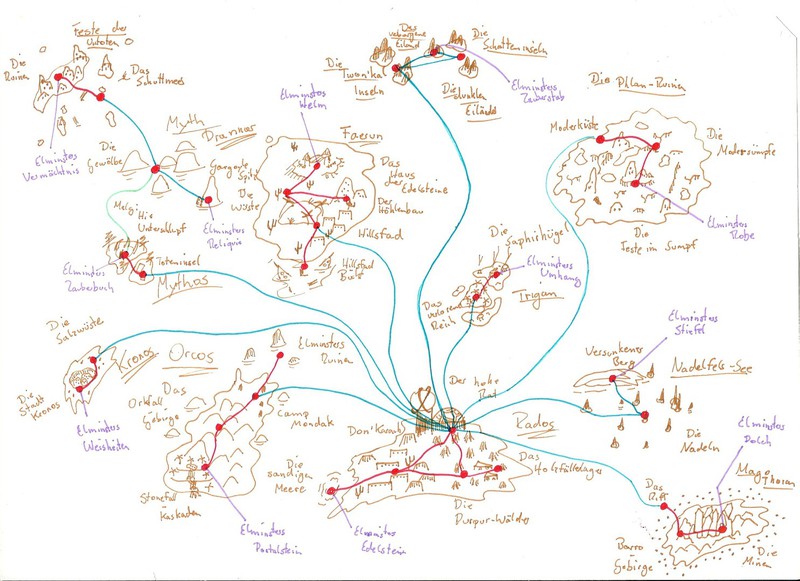 Feste der
Untoten
Die
Ruinen
Das
Schuttmeer
Elminsters
Vermächtnis
Myth
Drannor
Die
Gewölbe
Gargoyle
Spitz
Die
Wüste
Elminsters
Reliquie
Elminsters
Helm
Faerun
Das
Haus
der
Edelsteine
Der
Höhlenbau
Hillsfad
Hillsfad
Bucht
Das
verborgene
Eiland
Die
Schatteninseln
Die
Inseln
Die
dunklen
Eilande
Elminsters
Zauberstab
Die Phlan-Ruinen
Moderküste
Die
Modersümpfe
Die
Feste im Sumpf
Elminsters
Robe
Unterschlupf
Toteninsel
Elminsters
Zauberbuch
Mythos
Die
Saphirhügel
Elminsters
Umhang
Das
verlorene
Reich
Trigan
Die
Salzwüste
Kronos
Die
Stadt
Kronos
Elminsters
Weisheiten
Orcos
Elminsters
Ruinen
Das
Orkfall
Gebirge
Camp
Mondak
Stonefall
Kaskaden
Elminsters
Portalstein
Der hohe
Rat
Rados
Die
sandigen
Meere
Das
Holzfällerlager
Die
Purpur-Wälder
Elminsters
Edelstein
Versunkener
Berg
Elminsters
Stiefel
Nadelfels-See
Die
Nadeln
Elminsters
Dolch
Mago
Thoran
Das
Riff
Barro-
Gebirge
Die
Minen